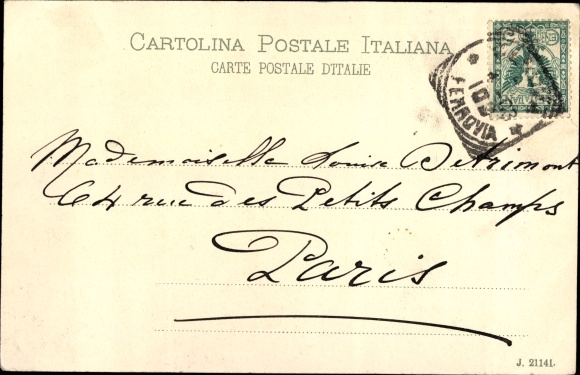 CARTOLINA POSTALE ITALIANA
CARTE POSTALE D'ITALIE
FERROVIA
10
Mademoiselle Louise Detrimont
64 rue des Petits Champs
Paris
J. 21141.